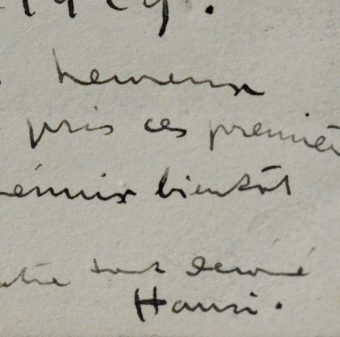 1929.
heureux
pris ces premiè
réunir bientôt
tout dévoué
Hansi.